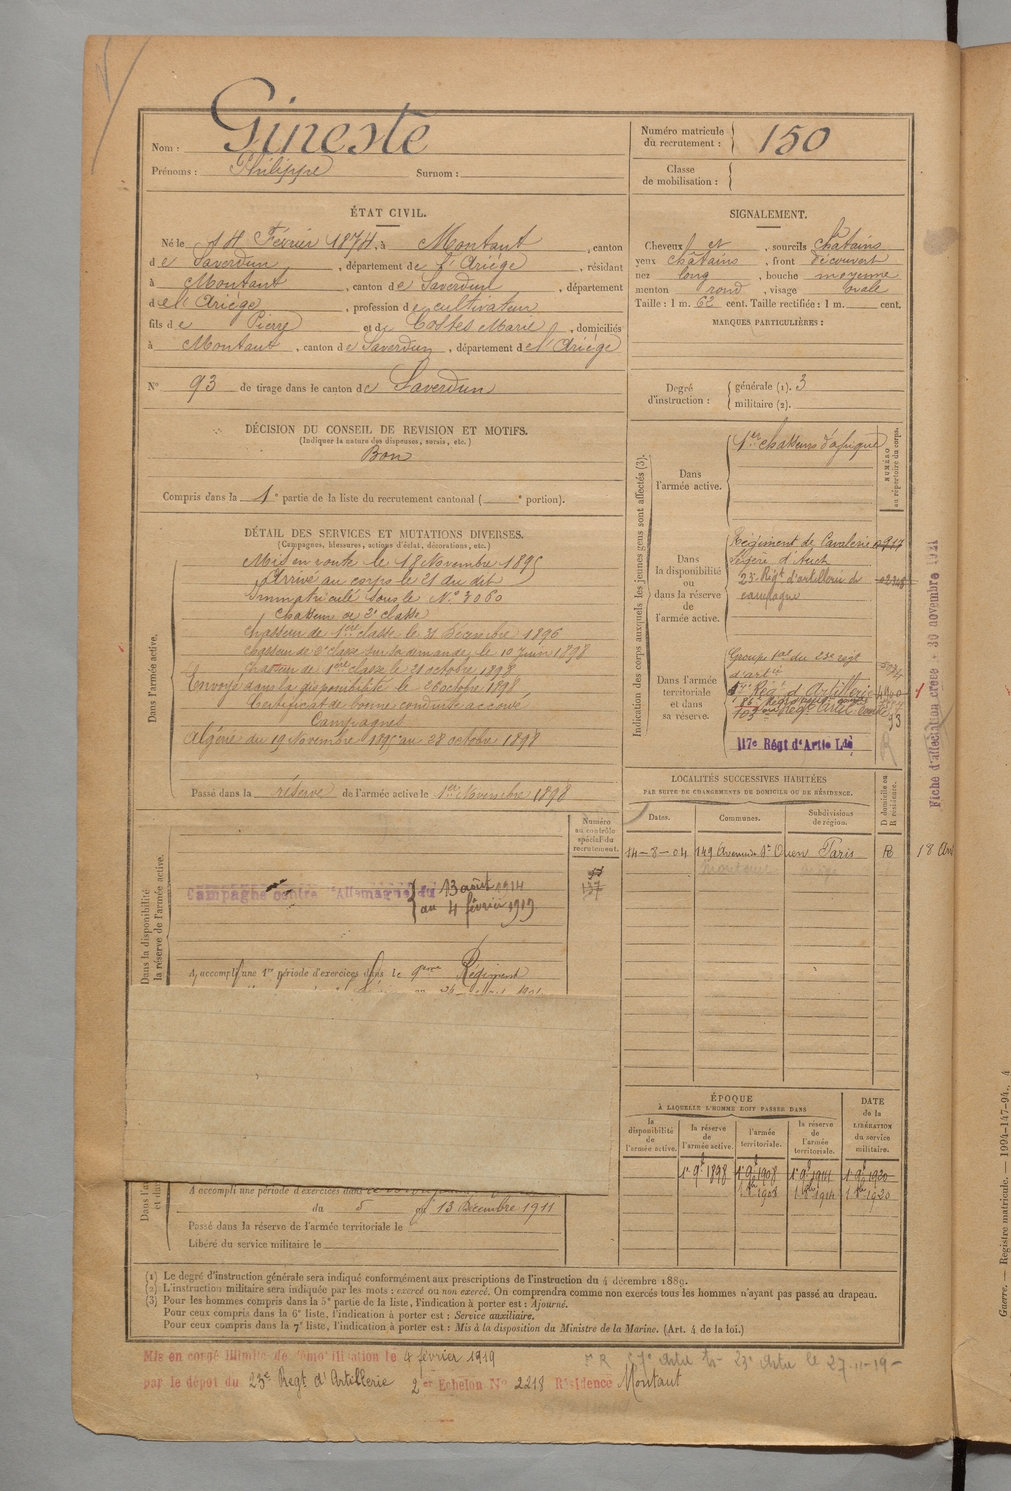 Nom : Gineste
Prénoms : Philippe Surnom :
Numéro matricule du recrutement : 150
Classe de mobilisation :
ÉTAT CIVIL.
Né le 14 Février 1874, à Montaut, canton
de Saverdun, département de l'Ariége, résidant
à Montaut, canton de Saverdun, département
de l'Ariége, profession de cultivateur
fils de Pierre et de Costes Marie, domiciliés
à Montaut, canton de Saverdun, département de l'Ariége
N° 93 de tirage dans le canton de Saverdun
SIGNALEMENT.
Cheveux et, sourcils châtains
yeux châtains, front découvert
nez long, bouche moyenne
menton rond, visage ovale
Taille : 1 m. 62 cent. Taille rectifiée : 1 m. cent.
MARQUES PARTICULIÈRES :
Degré d'instruction : générale (1). 3
militaire (2).
DÉCISION DU CONSEIL DE REVISION ET MOTIFS.
(Indiquer la nature des dispenses, sursis, etc.)
Bon
Compris dans la 1e partie de la liste du recrutement cantonal ( e portion).
DÉTAIL DES SERVICES ET MUTATIONS DIVERSES.
(Campagnes, blessures, actions d'éclat, décorations, etc.)
Dans l'armée active.
Mis en route le 18 Novembre 1895
Arrivé au corps le 21 du dit
Immatriculé sous le N° 3060
Chasseur de 2e classe
Chasseur de 1ère classe le 31 Décembre 1896
Chasseur de 2e classe sur sa demande le 10 Juin 1898
Chasseur de 1ère classe le 21 octobre 1898
Envoyé dans la disponibilité le 28 octobre 1898
Certificat de bonne conduite accordé
Campagnes
Algérie du 19 Novembre 1895 au 28 octobre 1898
Passé dans la réserve de l'armée active le 1er Novembre 1898
Indication des corps auxquels les jeunes gens sont affectés (3).
NUMÉRO au répertoire du corps.
Dans l'armée active.
1er chasseurs d'afrique
Dans la disponibilité ou dans la réserve de l'armée active.
Régiment de Cavalerie
Légère d'Auch
23e Régt d'artillerie de
campagne
Dans l'armée territoriale et dans sa réserve.
Groupe tal du 23e régt
d'artie
117e Régt d'Artie Lde
R
Fiche d'affectation créée - 30 novembre 1921
LOCALITÉS SUCCESSIVES HABITÉES
PAR SUITE DE CHANGEMENTS DE DOMICILE OU DE RÉSIDENCE.
D domicile ou R résidence.
Dates. Communes. Subdivisions de région.
14-8-04 149 Avenue St Ouen Paris R
Dans la disponibilité
la réserve de l'armée active.
Numéro au contrôle spécial du recrutement.
137
Campagne contre l'Allemagne du 13 août 1914
au 4 février 1919
A accompli une 1re période d'exercices dans le 9ème Régiment
ÉPOQUE
À LAQUELLE L'HOMME DOIT PASSER DANS
DATE de la LIBÉRATION du service militaire.
la disponibilité de l'armée active.
la réserve de l'armée active.
l'armée territoriale.
la réserve de l'armée territoriale.
1r 9bre 1898 1r 9bre 1908 1r 9bre 1914 1r 9bre 1920
A accompli une période d'exercices dans
du 5 au 13 Décembre 1911
Passé dans la réserve de l'armée territoriale le
Libéré du service militaire le
(1) Le degré d'instruction générale sera indiqué conformément aux prescriptions de l'instruction du 4 décembre 1889.
(2) L'instruction militaire sera indiquée par les mots : exercé ou non exercé. On comprendra comme non exercés tous les hommes n'ayant pas passé au drapeau.
(3) Pour les hommes compris dans la 5e partie de la liste, l'indication à porter est : Ajourné.
Pour ceux compris dans la 6e liste, l'indication à porter est : Service auxiliaire.
Pour ceux compris dans la 7e liste, l'indication à porter est : Mis à la disposition du Ministre de la Marine. (Art. 4 de la loi.)
Mis en congé illimité de démobilisation le 4 février 1919
par le dépot du 23e Regt d'Artillerie 2e Echelon N° 2218 Résidence Montaut
23e Artie le 27-11-19-
Guerre. — Registre matricule. — 1994-147-94.